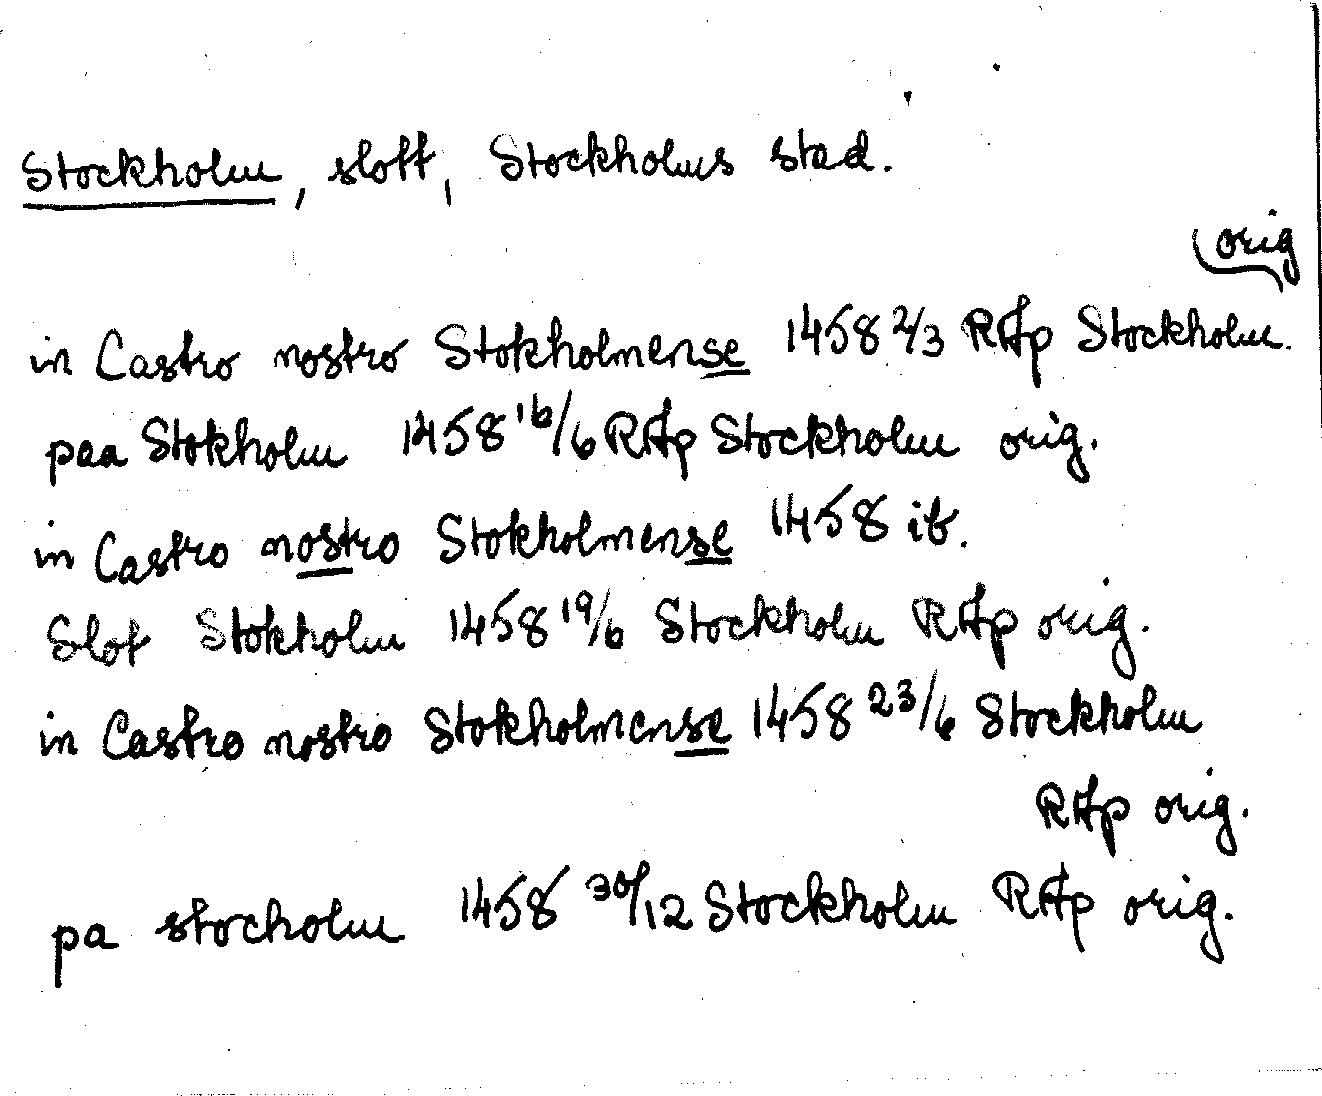 Stockholm, slott, Stockholms stad.
in Castro nostro Stokholmense 1458 2/3 RAp Stockholm. orig
paa Stokholm 1458 16/6 RAp Stockholm orig.
in Castro nostro Stokholmense 1458 ib.
Slot Stokholm 1458 19/6 Stockholm RAp orig.
in Castro nostro Stokholmense 1458 23/6 Stockholm
RAp orig.
pa stocholm 1458 30/12 Stockholm RAp orig.